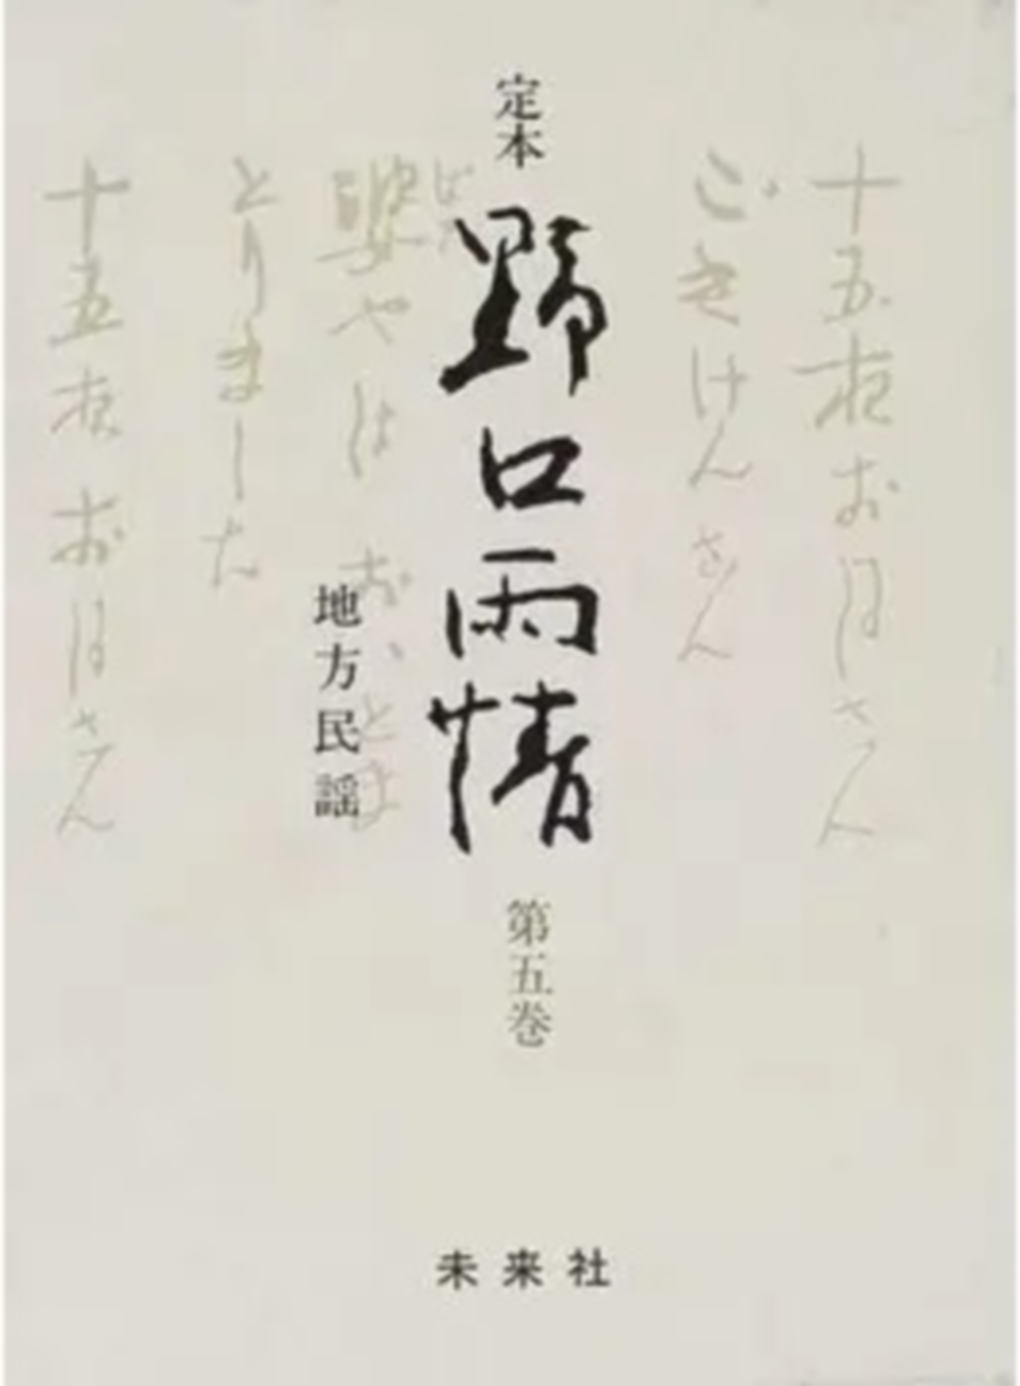 定本
野口雨情
地方民謡
第五巻
未来社
十五夜お月さん
ごきげんさん
婆やは おいとま
とりました
十五夜お月さん